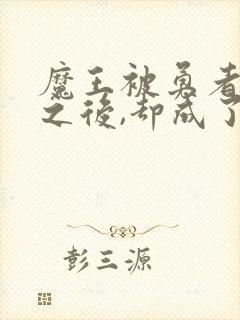 魔王被勇者
之後,却成了
彭三源